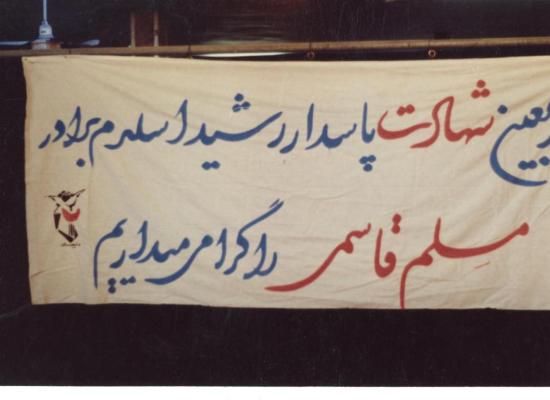 ربعین شهادت پاسدار رشید اسلام برادر
مسلم قاسمی را گرامی میداریم